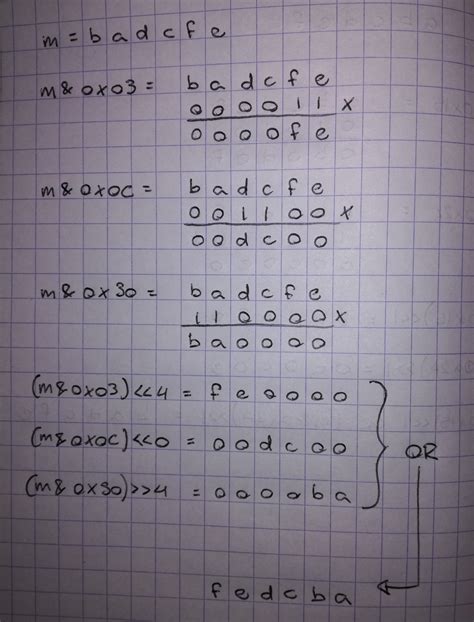 m = b a d c f e
m & 0x03 = b a d c f e
0 0 0 0 1 1 x
0 0 0 0 f e
m & 0x0C = b a d c f e
0 0 1 1 0 0 x
0 0 d c 0 0
m & 0x30 = b a d c f e
1 1 0 0 0 0 x
b a 0 0 0 0
(m & 0x03) << 4 = f e 0 0 0 0
(m & 0x0C) << 0 = 0 0 d c 0 0
OR
(m & 0x30) >> 4 = 0 0 0 0 b a
f e d c b a